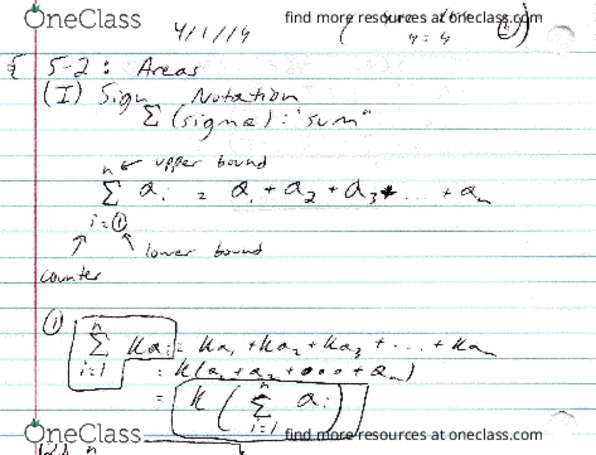 OneClass
find more resources at oneclass.com
4/1/14
§ 5-2: Areas
(I) Sign Notation
Σ (sigma): "sum"
n ← upper bound
Σ aᵢ = a₁ + a₂ + a₃ + ... + aₙ
i=1
lower bound
counter
① n
Σ kaᵢ = ka₁ + ka₂ + ka₃ + ... + kaₙ
i=1
= k(a₁ + a₂ + ... + aₙ)
= k ( n Σ i=1 aᵢ )
OneClass
find more resources at oneclass.com